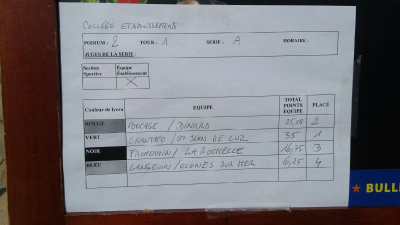 COLLÈGE ETABLISSEMENT
PODIUM : 2 TOUR : 1 SERIE : A HORAIRE :
JUGES DE LA SERIE :
Section Sportive
Equipe Etablissement
X
Couleur de lycra EQUIPE TOTAL POINTS EQUIPE PLACE
ROUGE BOCAGE / DINARD 25,58 2
VERT CHANTACO / ST JEAN DE LUZ 35 1
NOIR FROMENTIN / LA ROCHELLE 16,75 3
BLEU LANGEVIN / OLONNES SUR MER 6,25 4
BULL